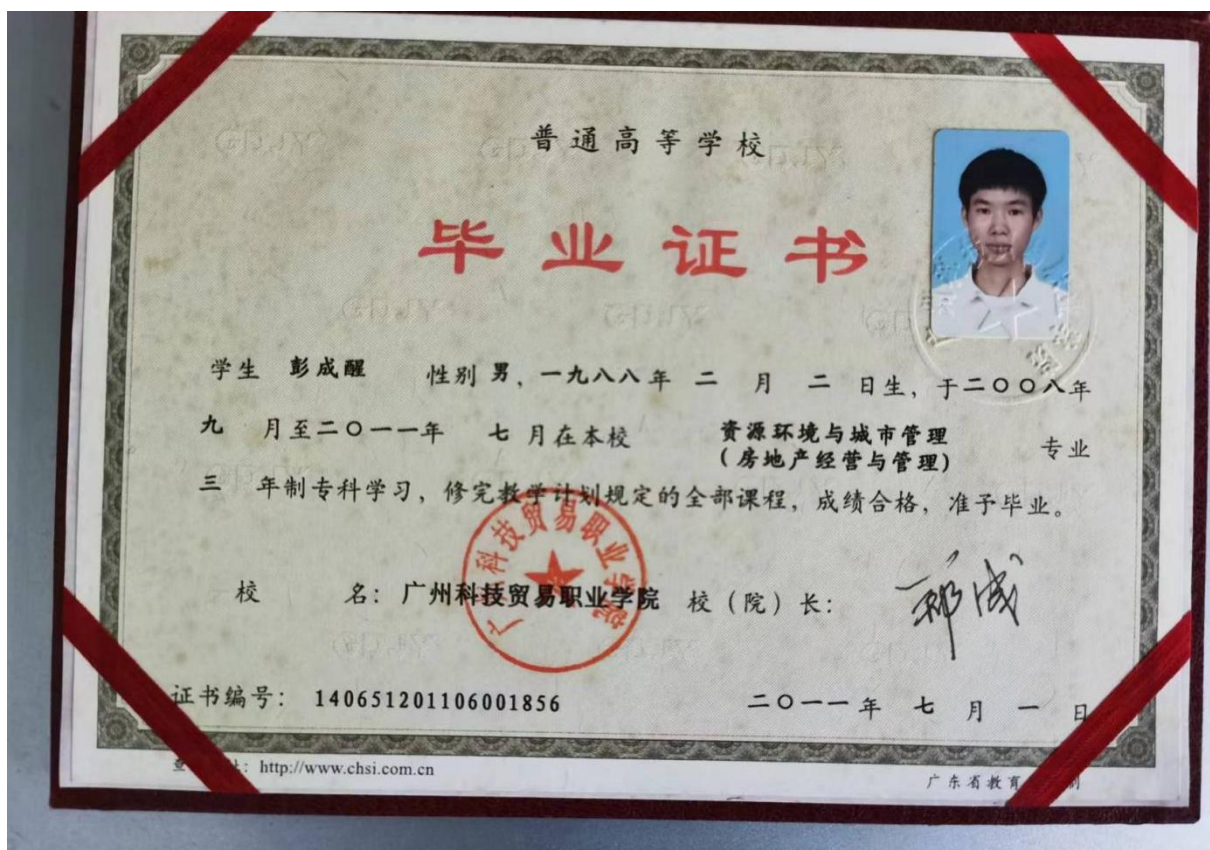 普通高等学校
毕业证书
学生 彭成醒 性别 男，一九八八年 二 月 二 日生，于二〇〇八年
九 月至二〇一一年 七 月在本校 资源环境与城市管理 专业
(房地产经营与管理)
三 年制专科学习，修完教学计划规定的全部课程，成绩合格，准予毕业。
广州科技贸易职业学院
校 名：广州科技贸易职业学院 校（院）长：
证书编号：140651201106001856 二〇一一年 七 月 一 日
址：http://www.chsi.com.cn
广东省教育 制